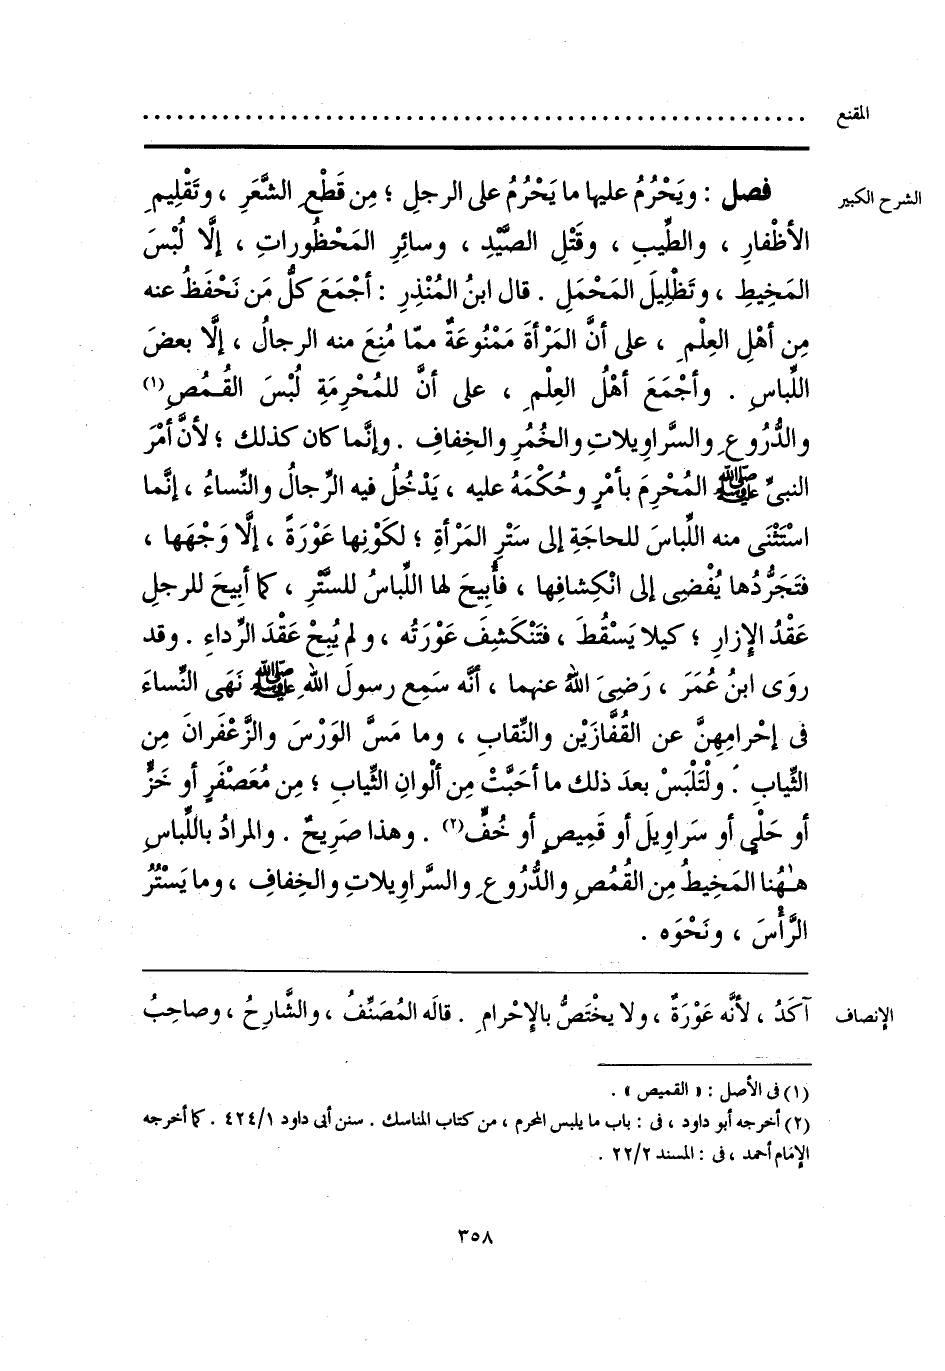 المقنع
. . . . . . . . . . . . . . . . . . . . . . . . . . . . . . . . . . . . . . . . . . . . . . . . . . . . . . . . . . .
الشرح الكبير
فصل : ويَحْرُمُ عليها ما يَحْرُمُ على الرجلِ ؛ مِن قَطْعِ الشَّعَرِ ، وتَقْلِيمِ
الأظْفارِ ، والطِّيبِ ، وقَتْلِ الصَّيْدِ ، وسائِرِ المَحْظُوراتِ ، إلَّا لُبْسَ
المَخِيطِ ، وتَظْلِيلَ المَحْمَلِ . قال ابنُ المُنْذِرِ : أجْمَعَ كلُّ مَن نَحْفَظُ عنه
مِن أهْلِ العِلْمِ ، على أنَّ المَرْأةَ مَمْنُوعَةٌ ممّا مُنِعَ منه الرجالُ ، إلَّا بعضَ
اللِّباسِ . وأجْمَعَ أهْلُ العِلْمِ ، على أنَّ للمُحْرِمَةِ لُبْسَ القُمُصِ(١)
والدُّرُوعِ والسَّراوِيلاتِ والخُمُرِ والخِفافِ . وإنَّما كان كذلك ؛ لأنَّ أمْرَ
النبىِّ ﷺ المُحْرِمَ بأمْرٍ وحُكْمَهُ عليه ، يَدْخُلُ فيه الرِّجالُ والنِّساءُ ، إنَّما
اسْتَثْنَى منه اللِّباسَ للحاجَةِ إلى سَتْرِ المَرْأةِ ؛ لكَوْنِها عَوْرَةً ، إلَّا وَجْهَها ،
فتَجَرُّدُها يُفْضِى إلى انْكِشافِها ، فأُبِيحَ لها اللِّباسُ للسَّتْرِ ، كما أُبِيحَ للرجلِ
عَقْدُ الإِزارِ ؛ كيلا يَسْقُطَ ، فتَنْكَشِفَ عَوْرَتُه ، ولم يُبِحْ عَقْدَ الرِّداءِ . وقد
روَى ابنُ عُمَرَ ، رَضِىَ اللهُ عنهما ، أنَّه سَمِع رسولَ اللهِ ﷺ نَهَى النِّساءَ
فى إحْرامِهِنَّ عن القُفَّازَيْنِ والنِّقابِ ، وما مَسَّ الوَرْسَ والزَّعْفَرانَ مِن
الثِّيابِ . ولْتَلْبَسْ بعدَ ذلك ما أحَبَّتْ مِن ألْوانِ الثِّيابِ ؛ مِن مُعَصْفَرٍ أو خَزٍّ
أو حَلْىٍ أو سَراوِيلَ أو قَمِيصٍ أو خُفٍّ(٢) . وهذا صَرِيحٌ . والمرادُ باللِّباسِ
هـٰهُنا المَخِيطُ مِن القُمُصِ والدُّرُوعِ والسَّراوِيلاتِ والخِفافِ ، وما يَسْتُرُ
الرَّأْسَ ، ونَحْوَه .
الإنصاف
آكَدُ ، لأنَّه عَوْرَةٌ ، ولا يخْتَصُّ بالإِحْرامِ . قالَه المُصَنِّفُ ، والشَّارِحُ ، وصاحِبُ
(١) فى الأصل : « القميص » .
(٢) أخرجه أبو داود ، فى : باب ما يلبس المحرم ، من كتاب المناسك . سنن أبى داود ٤٢٤/١ . كما أخرجه
الإمام أحمد ، فى : المسند ٢٢/٢ .
٣٥٨